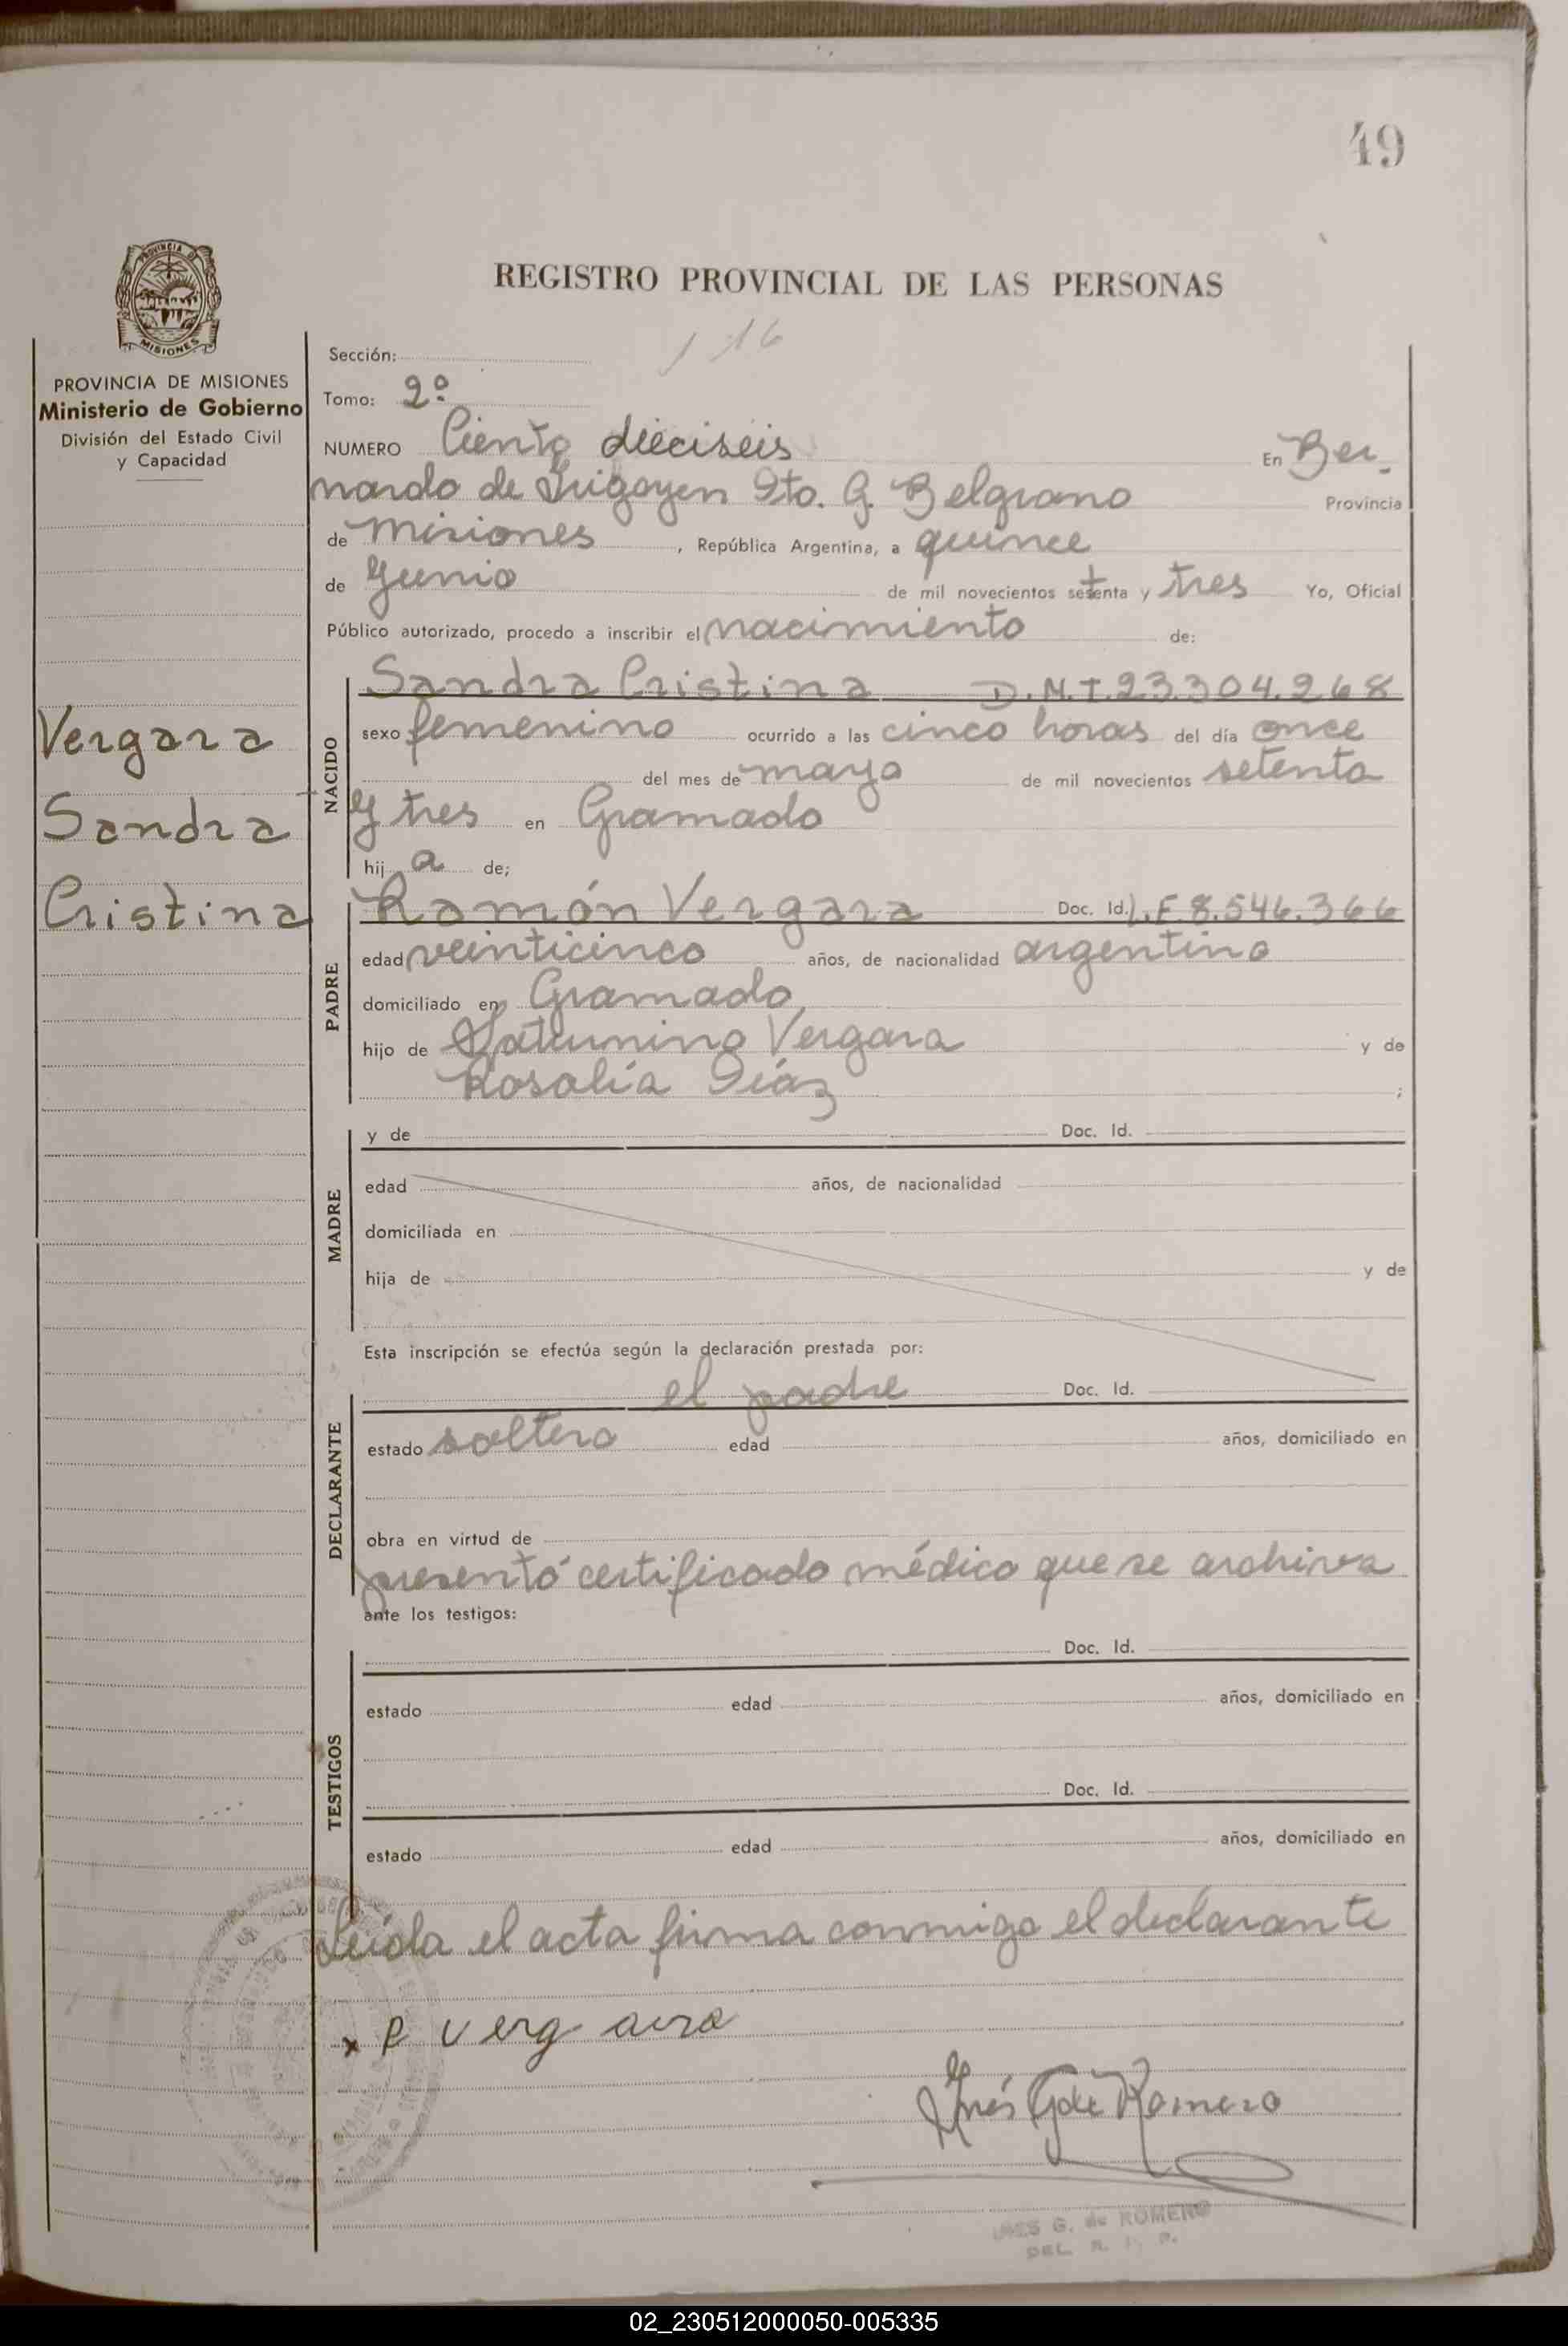 49
REGISTRO PROVINCIAL DE LAS PERSONAS
PROVINCIA DE MISIONES
Ministerio de Gobierno
División del Estado Civil
y Capacidad
Vergara
Sandra
Cristina
116
Sección:
Tomo: 2º
NUMERO Ciento dieciseis En Ber-
nardo de Irigoyen Dto. G. Belgrano Provincia
de Misiones, República Argentina, a quince
de Junio de mil novecientos setenta y tres Yo, Oficial
Público autorizado, procedo a inscribir el nacimiento de:
NACIDO
Sandra Cristina D.N.I. 23.304.268
sexo femenino ocurrido a las cinco horas del día once
del mes de mayo de mil novecientos setenta
y tres en Gramado
hij a de;
PADRE
Ramón Vergara Doc. Id. L.E 8.546.366
edad veinticinco años, de nacionalidad argentino
domiciliado en Gramado
hijo de Saturnino Vergara y de
Rosalía Diaz ;
MADRE
y de Doc. Id.
edad años, de nacionalidad
domiciliada en
hija de y de
Esta inscripción se efectúa según la declaración prestada por:
DECLARANTE
el padre Doc. Id.
estado soltero edad años, domiciliado en
obra en virtud de
presentó certificado médico que se archiva
ante los testigos:
TESTIGOS
Doc. Id.
estado edad años, domiciliado en
Doc. Id.
estado edad años, domiciliado en
Leída el acta firma conmigo el declarante
x R verg
Inés G de Romero
INES G. de ROMERO
DEL. R. P.
02_230512000050-005335